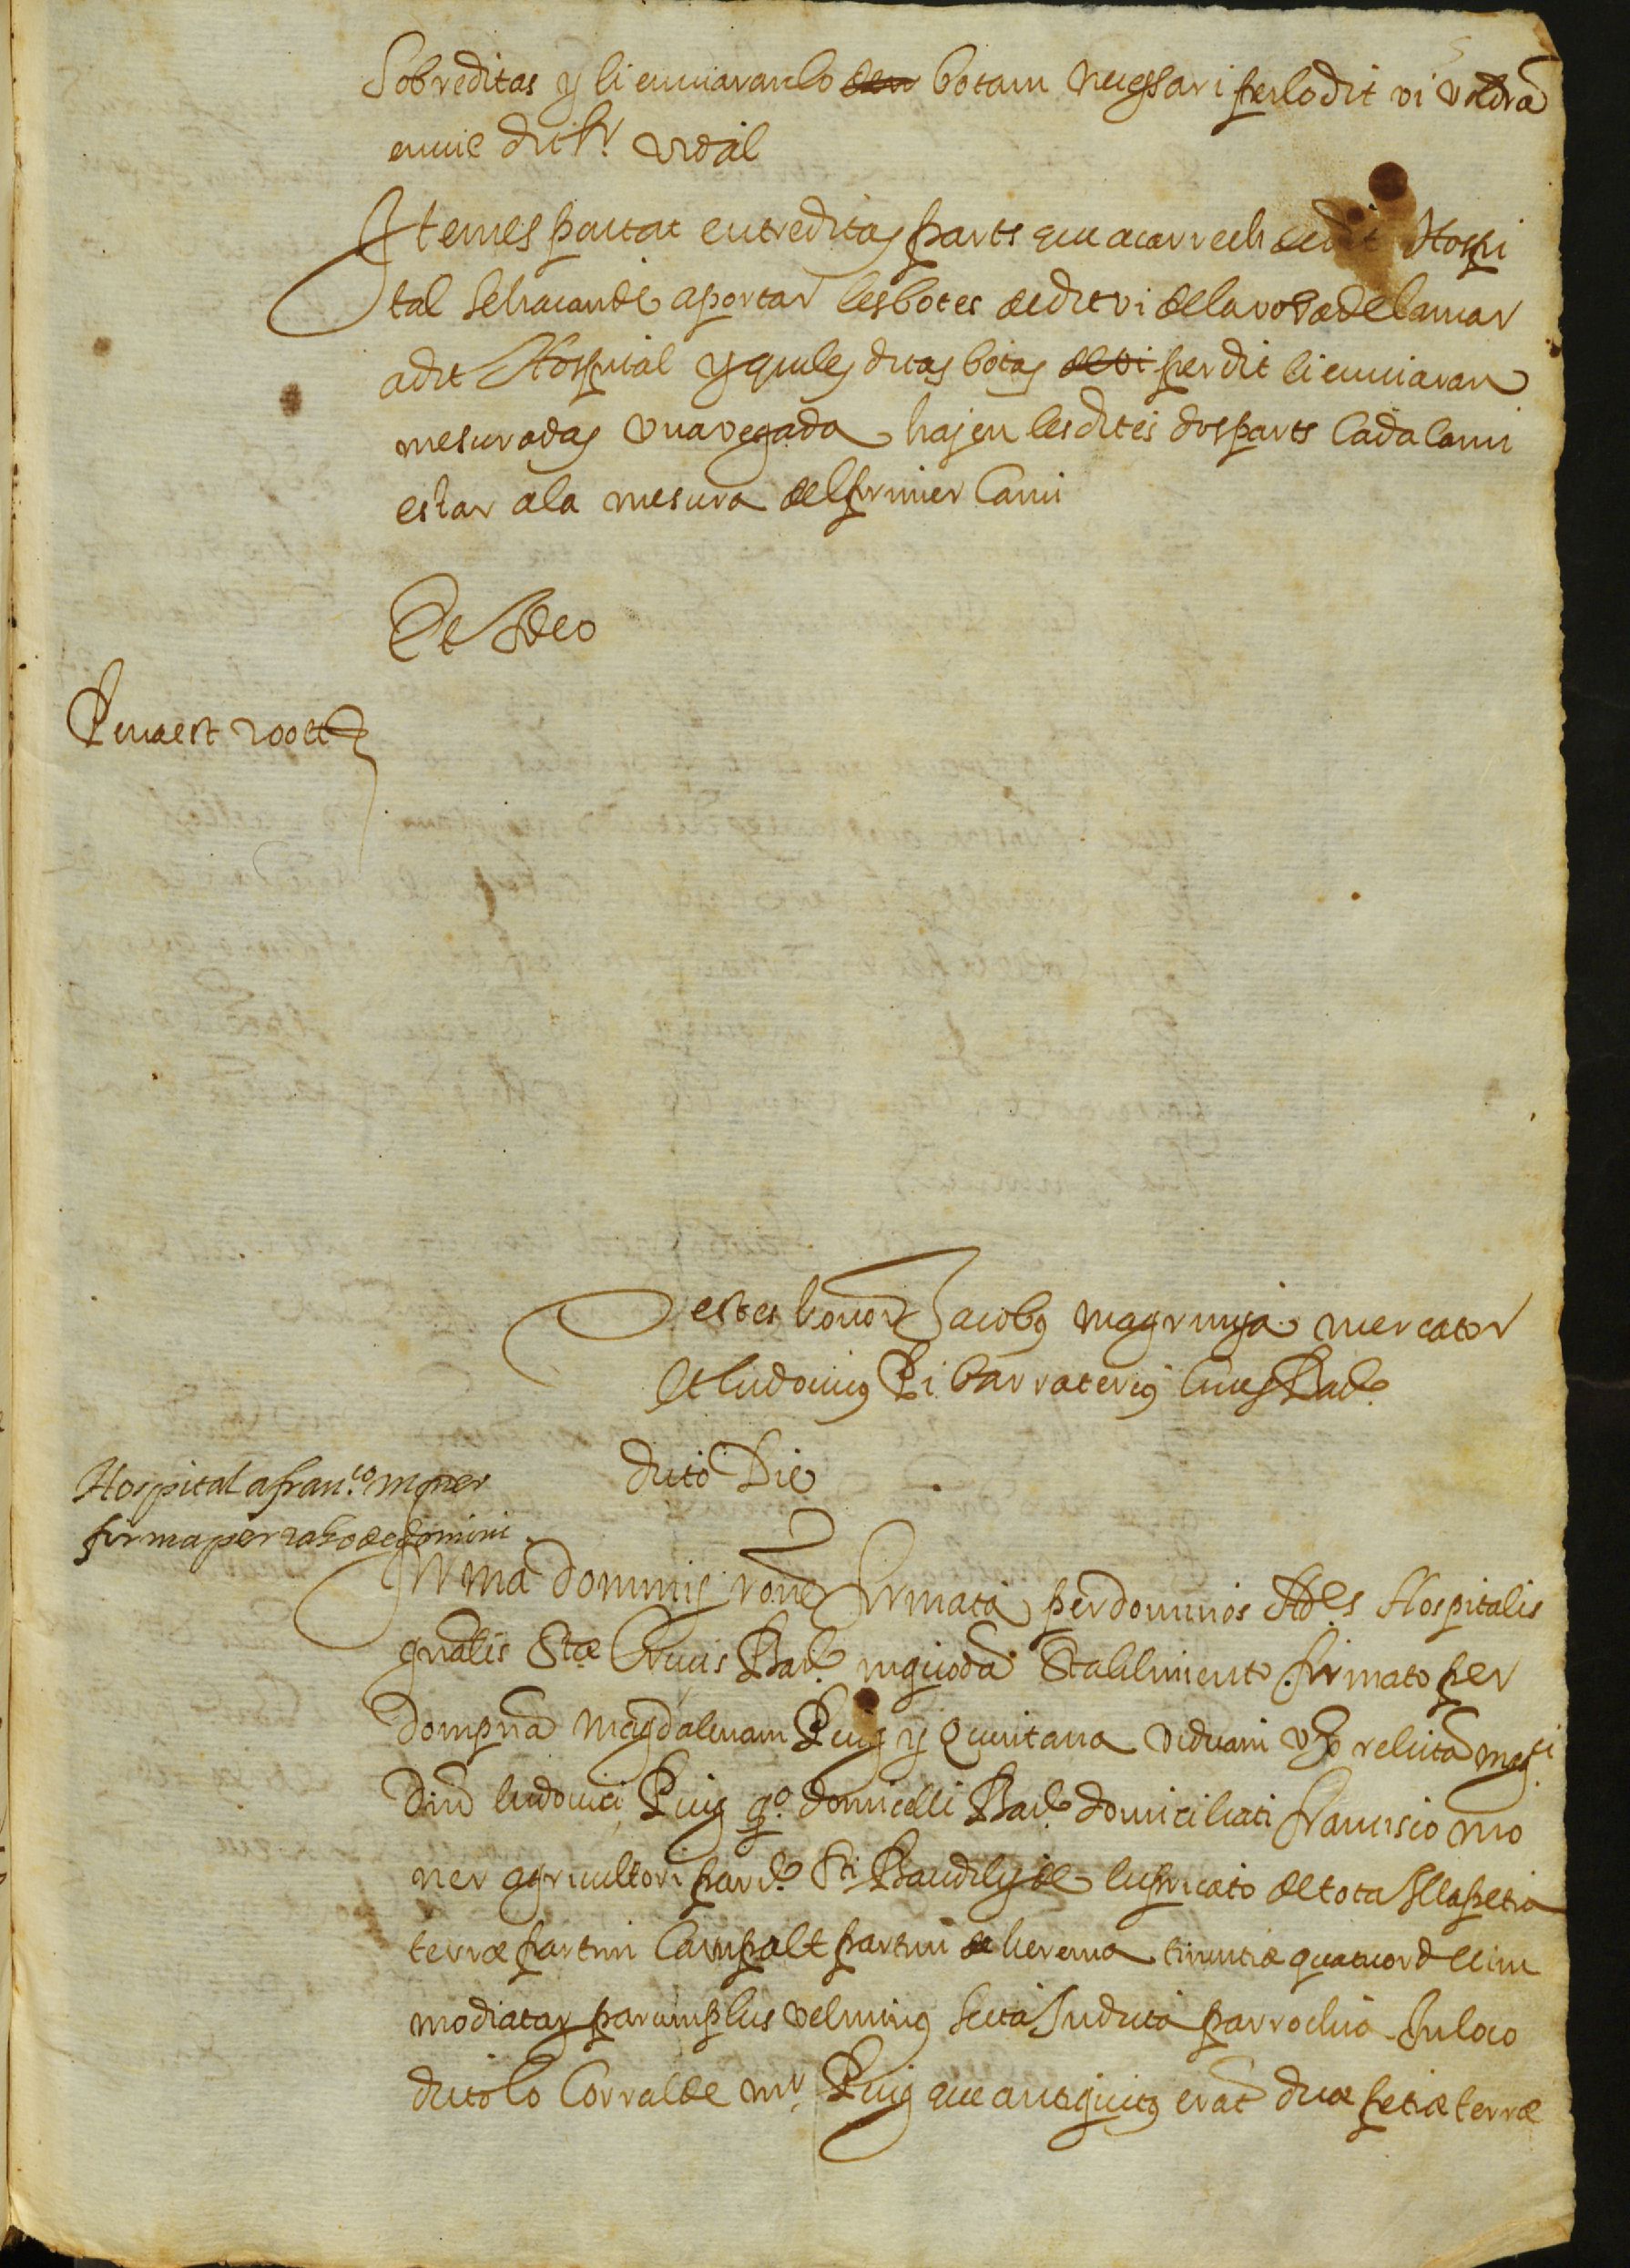 Sobreditas y li enviaran lo den botam necessari per lo dit vi voldra
envie dit Sr. Vidal
Item es pactat entre ditas parts que a carrech de dit Hospi
tal se haia de aportar les botes de dit vi de la vora de la mar
a dit Hospital y que les ditas botas de vi per dit li enviaran
mesuradas una vegada hajen les dites dos parts cada cami
estar a la mesura del primer cami
Et Ideo
Pena est 200 ll
Testes honor Jacobus Magrinya mercator
et Ludovicus Pi barraterius cives Bare
Dicto Die
Hospital a franco. moner
firma per raho de domini
Firma dominij rone firmata per dominos Ades Hospitalis
gnalis Stæ Crucis Bare. in quoda Stabilimento firmato per
dompna Magdalenam Puig y Quintana viduam relicta mag.ci
Ludovici Puig qo. domicelli Bare domiciliati francisco mo
ner agricultori par.e Sti Baudilij de lupricato de tota Illa petia
terræ partim Camp alt partim de herema tinentiæ quatuordecim
modiatar parum plus vel minus sita In dicta parrochia In loco
dicto lo Corral de mr. Puig que antiquitus erat duæ petiæ terræ